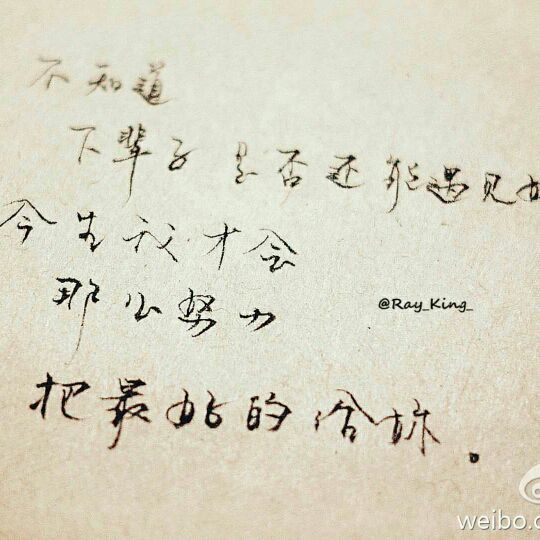 不知道
下辈子是否还能遇见
今生我才会
那么努力
@Ray_King_
把最好的给妳。
weibo.c